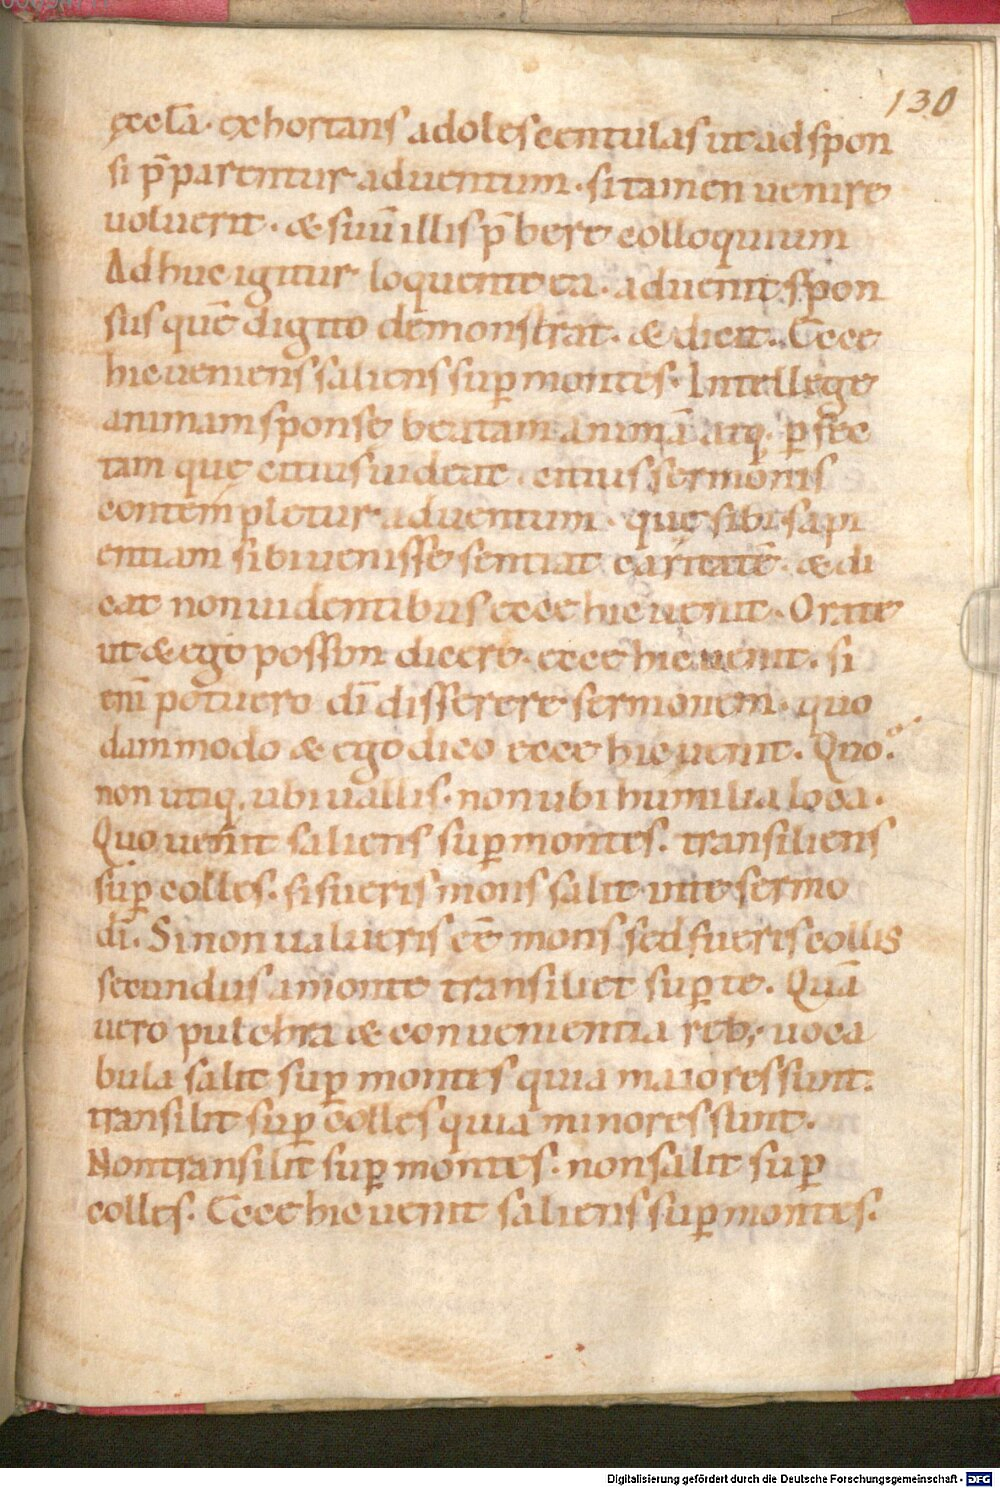 130
ęccła. exhortans adolescentulas ut ad spon
si p̄parentur aduentum. si tamen uenire
uoluerit. & suū illis p̄bere colloquium
Adhuc igitur loquente ea. aduenit spon
sus quē digito demonstrat. & dicit. Ecce
hic ueniens saliens sup montes. Intellege
animam sponse beatam animā atq. perfec
tam que citius uideat. citius sermonis
contempletur aduentum. quę sibi sapi
entiam sibi uenisse sentiat caritatē. & di
cat non uidentibus ecce hic uenit. Orate
ut & ego possim dicere. ecce hic uenit. si
eni potuero dī disserere sermonem. quo
dammodo & ego dico ecce hic uenit. Quo.
non utiq. ubi uallis. non ubi humilia loca.
Quo uenit saliens sup montes. transiliens
sup colles. si fueris mons salit in te sermo
dī. Si non ualueris eē mons sed fueris collis
secundus a monte transiliet sup te. Quā
uero pulchra & conuenientia reb; uoca
bula salit sup montes quia maiores sunt.
transilit sup colles quia minores sunt.
Non transilit sup montes. non salit sup
colles. Ecce hic uenit saliens sup montes.
Digitalisierung gefördert durch die Deutsche Forschungsgemeinschaft - DFG